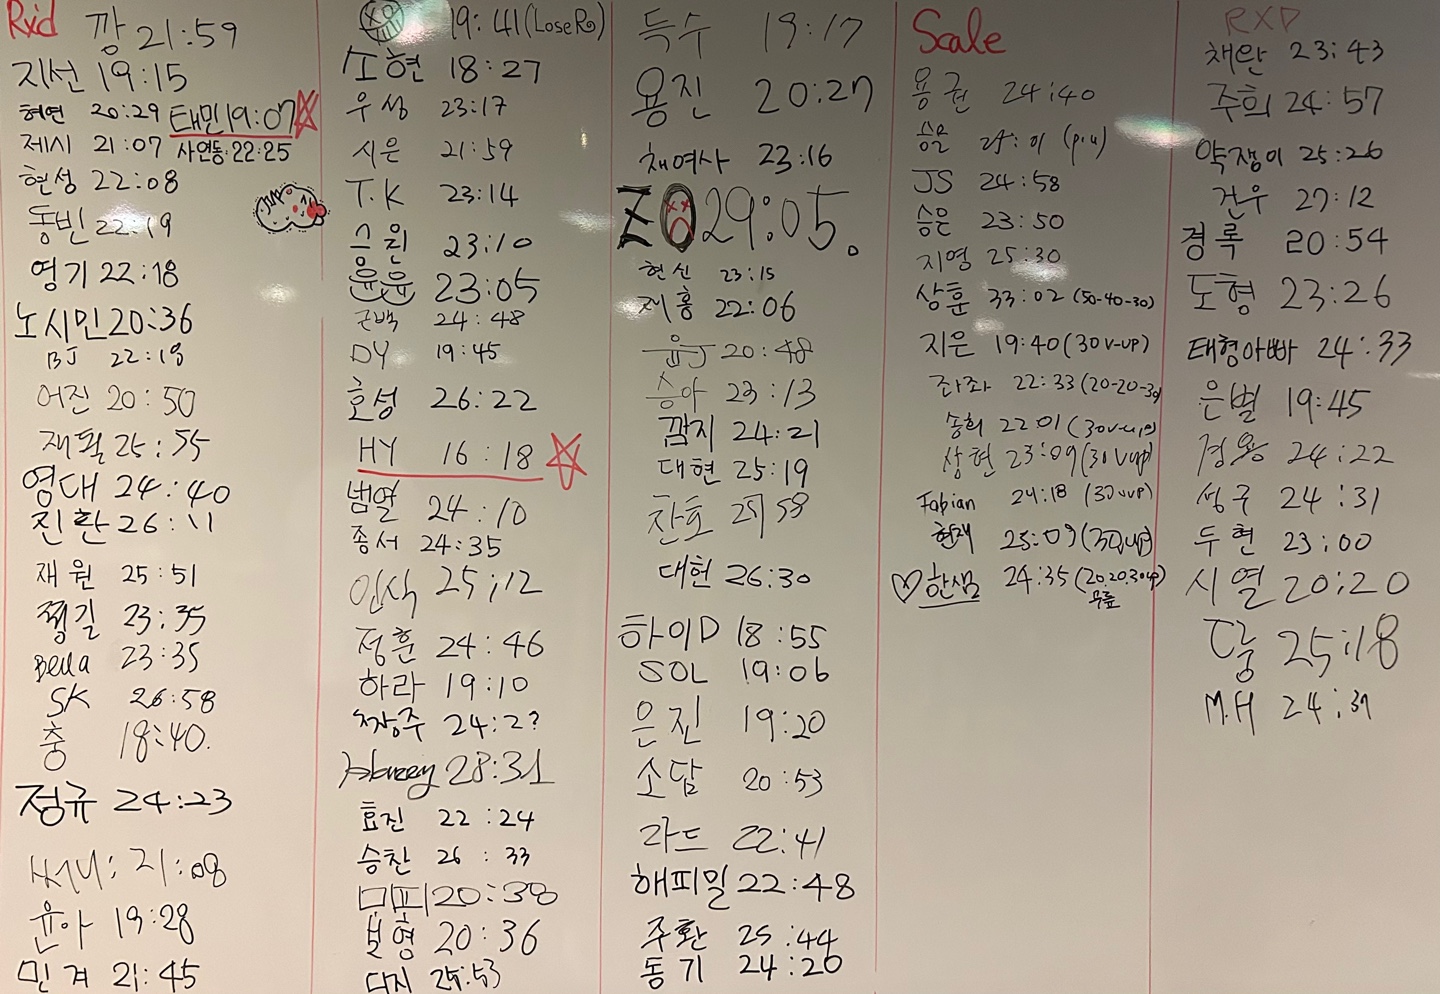 Rxd
깡 21:59
지선 19:15
허연 20:29 태민 19:07
제시 21:07 사연동 22:25
현성 22:08
동빈 22:19
영기 22:18
노시민 20:36
BJ 22:18
어진 20:50
재필 25:55
영대 24:40
진환 26:11
재원 25:51
찡길 23:35
Bella 23:35
SK 26:58
충 18:40.
정규 24:23
써니: 21:08
윤아 19:28
민겨 21:45
19:41 (LoseR)
소현 18:27
우성 23:17
시은 21:59
T.K 23:14
승원 23:10
윤윤 23:05
근백 24:48
DY 19:45
호성 26:22
HY 16:18
범열 24:10
종서 24:35
인식 25:12
정훈 24:46
하라 19:10
짱주 24:2?
28:31
효진 22:24
승찬 26:33
미피 20:38
보형 20:36
다지 25:53
득수 19:17
용진 20:27
채여사 23:16
Z0 29:05.
현신 23:15
제홍 22:06
윤J 20:48
승아 23:13
깜지 24:21
대현 25:19
찬호 25:58
대헌 26:30
하이D 18:55
SOL 19:06
은진 19:20
소담 20:53
라드 22:41
해피밀 22:48
주환 25:44
동기 24:20
Scale
용권 24:40
승윤
JS 24:58
승은 23:50
지영 25:30
상훈 33:02 (50-40-30)
지은 19:40 (30 v-up)
좌좌 22:33 (20-20-30)
송희 22:01 (30v-up)
상현 23:09 (30 Vup)
Fabian 24:18 (30vup)
현재 25:09 (30up)
한샘 24:35 (20.20.30up)
무릎
RXD
채란 23:43
주희 24:57
약쟁이 25:26
건우 27:12
경록 20:54
도형 23:26
태형아빠 24:33
은별 19:45
경용 24:22
성구 24:31
두현 23:00
시열 20:20
다웅 25:18
M.H 24:39